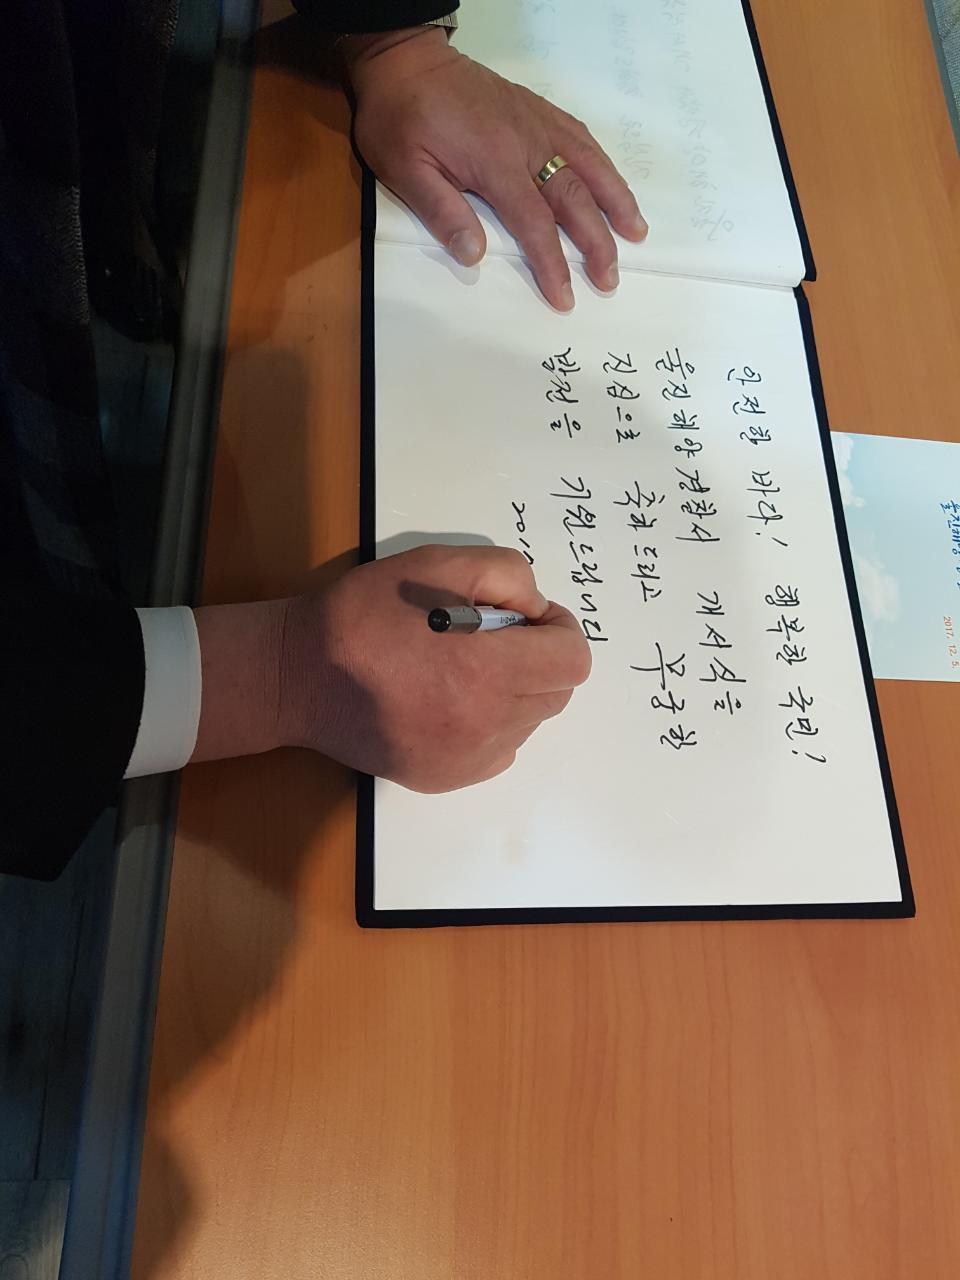 안전한 바다! 행복한 국민!
울진해양경찰서 개서식을
진심으로 축하드리고 무궁한
발전을 기원드립니다
울진해양
2017. 12. 5.